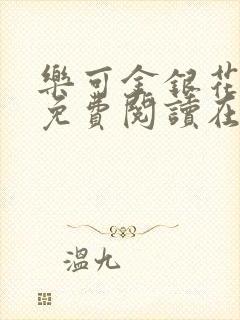 樂可金銀花
免費閱讀在
溫九